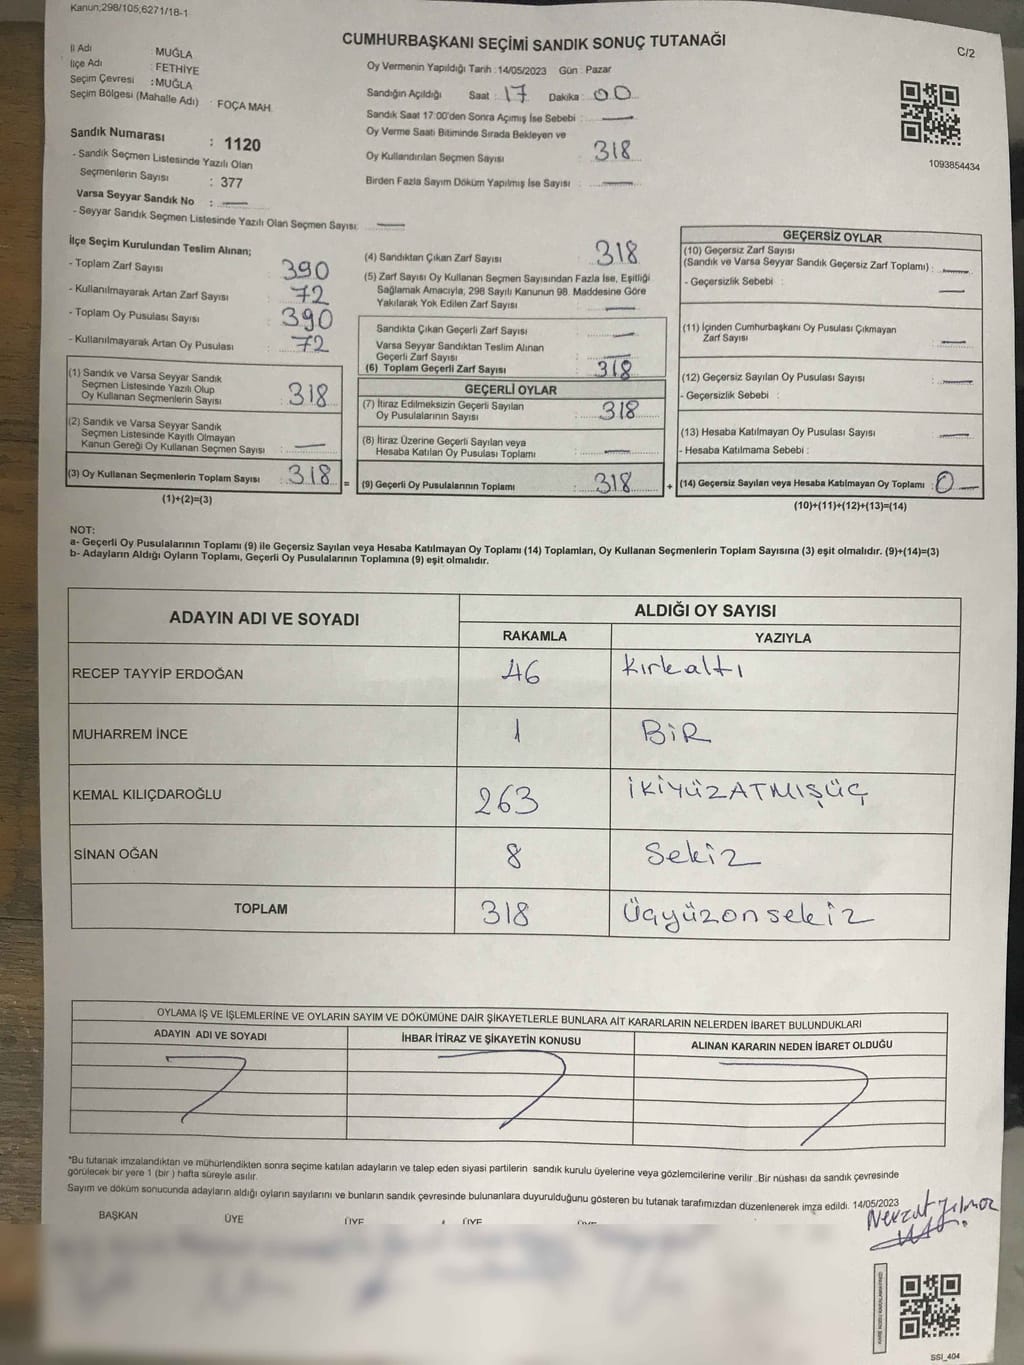 Kanun;298/105;6271/18-1
CUMHURBAŞKANI SEÇİMİ SANDIK SONUÇ TUTANAĞI
C/2
İl Adı MUĞLA
İlçe Adı : FETHİYE
Seçim Çevresi : MUĞLA
Seçim Bölgesi (Mahalle Adı) : FOÇA MAH.
Sandık Numarası : 1120
- Sandık Seçmen Listesinde Yazılı Olan
Seçmenlerin Sayısı : 377
Varsa Seyyar Sandık No : —
- Seyyar Sandık Seçmen Listesinde Yazılı Olan Seçmen Sayısı: —
Oy Vermenin Yapıldığı Tarih : 14/05/2023 Gün : Pazar
Sandığın Açıldığı Saat : 17 Dakika : 00
Sandık Saat 17:00'den Sonra Açımış İse Sebebi : —
Oy Verme Saati Bitiminde Sırada Bekleyen ve
Oy Kullandırılan Seçmen Sayısı : 318
Birden Fazla Sayım Döküm Yapılmış İse Sayısı : —
1093854434
İlçe Seçim Kurulundan Teslim Alınan;
- Toplam Zarf Sayısı : 390
- Kullanılmayarak Artan Zarf Sayısı : 72
- Toplam Oy Pusulası Sayısı : 390
- Kullanılmayarak Artan Oy Pusulası : 72
(1) Sandık ve Varsa Seyyar Sandık
Seçmen Listesinde Yazılı Olup
Oy Kullanan Seçmenlerin Sayısı : 318
(2) Sandık ve Varsa Seyyar Sandık
Seçmen Listesinde Kayıtlı Olmayan
Kanun Gereği Oy Kullanan Seçmen Sayısı : —
(3) Oy Kullanan Seçmenlerin Toplam Sayısı : 318 =
(1)+(2)=(3)
(4) Sandıktan Çıkan Zarf Sayısı : 318
(5) Zarf Sayısı Oy Kullanan Seçmen Sayısından Fazla İse, Eşitliği
Sağlamak Amacıyla, 298 Sayılı Kanunun 98. Maddesine Göre
Yakılarak Yok Edilen Zarf Sayısı : —
Sandıkta Çıkan Geçerli Zarf Sayısı : —
Varsa Seyyar Sandıktan Teslim Alınan
Geçerli Zarf Sayısı : —
(6) Toplam Geçerli Zarf Sayısı : 318
GEÇERLİ OYLAR
(7) İtiraz Edilmeksizin Geçerli Sayılan
Oy Pusulalarının Sayısı : 318
(8) İtiraz Üzerine Geçerli Sayılan veya
Hesaba Katılan Oy Pusulası Toplamı : —
(9) Geçerli Oy Pusulalarının Toplamı : 318 +
GEÇERSİZ OYLAR
(10) Geçersiz Zarf Sayısı
(Sandık ve Varsa Seyyar Sandık Geçersiz Zarf Toplamı) : —
- Geçersizlik Sebebi : —
(11) İçinden Cumhurbaşkanı Oy Pusulası Çıkmayan
Zarf Sayısı : —
(12) Geçersiz Sayılan Oy Pusulası Sayısı : —
- Geçersizlik Sebebi :
(13) Hesaba Katılmayan Oy Pusulası Sayısı : —
- Hesaba Katılmama Sebebi :
(14) Geçersiz Sayılan veya Hesaba Katılmayan Oy Toplamı : 0 —
(10)+(11)+(12)+(13)=(14)
NOT:
a- Geçerli Oy Pusulalarının Toplamı (9) ile Geçersiz Sayılan veya Hesaba Katılmayan Oy Toplamı (14) Toplamları, Oy Kullanan Seçmenlerin Toplam Sayısına (3) eşit olmalıdır. (9)+(14)=(3)
b- Adayların Aldığı Oyların Toplamı, Geçerli Oy Pusulalarının Toplamına (9) eşit olmalıdır.
ADAYIN ADI VE SOYADI ALDIĞI OY SAYISI
RAKAMLA YAZIYLA
RECEP TAYYİP ERDOĞAN 46 Kırkaltı
MUHARREM İNCE 1 BİR
KEMAL KILIÇDAROĞLU 263 İKİYÜZATMIŞÜÇ
SİNAN OĞAN 8 Sekiz
TOPLAM 318 Üçyüzonsekiz
OYLAMA İŞ VE İŞLEMLERİNE VE OYLARIN SAYIM VE DÖKÜMÜNE DAİR ŞİKAYETLERLE BUNLARA AİT KARARLARIN NELERDEN İBARET BULUNDUKLARI
ADAYIN ADI VE SOYADI İHBAR İTİRAZ VE ŞİKAYETİN KONUSU ALINAN KARARIN NEDEN İBARET OLDUĞU
*Bu tutanak imzalandıktan ve mühürlendikten sonra seçime katılan adayların ve talep eden siyasi partilerin sandık kurulu üyelerine veya gözlemcilerine verilir. Bir nüshası da sandık çevresinde
görülecek bir yere 1 (bir ) hafta süreyle asılır.
Sayım ve döküm sonucunda adayların aldığı oyların sayılarını ve bunların sandık çevresinde bulunanlara duyurulduğunu gösteren bu tutanak tarafımızdan düzenlenerek imza edildi. 14/05/2023
Nevzat Yılmaz
BAŞKAN ÜYE ÜYE ÜYE
SSI_404